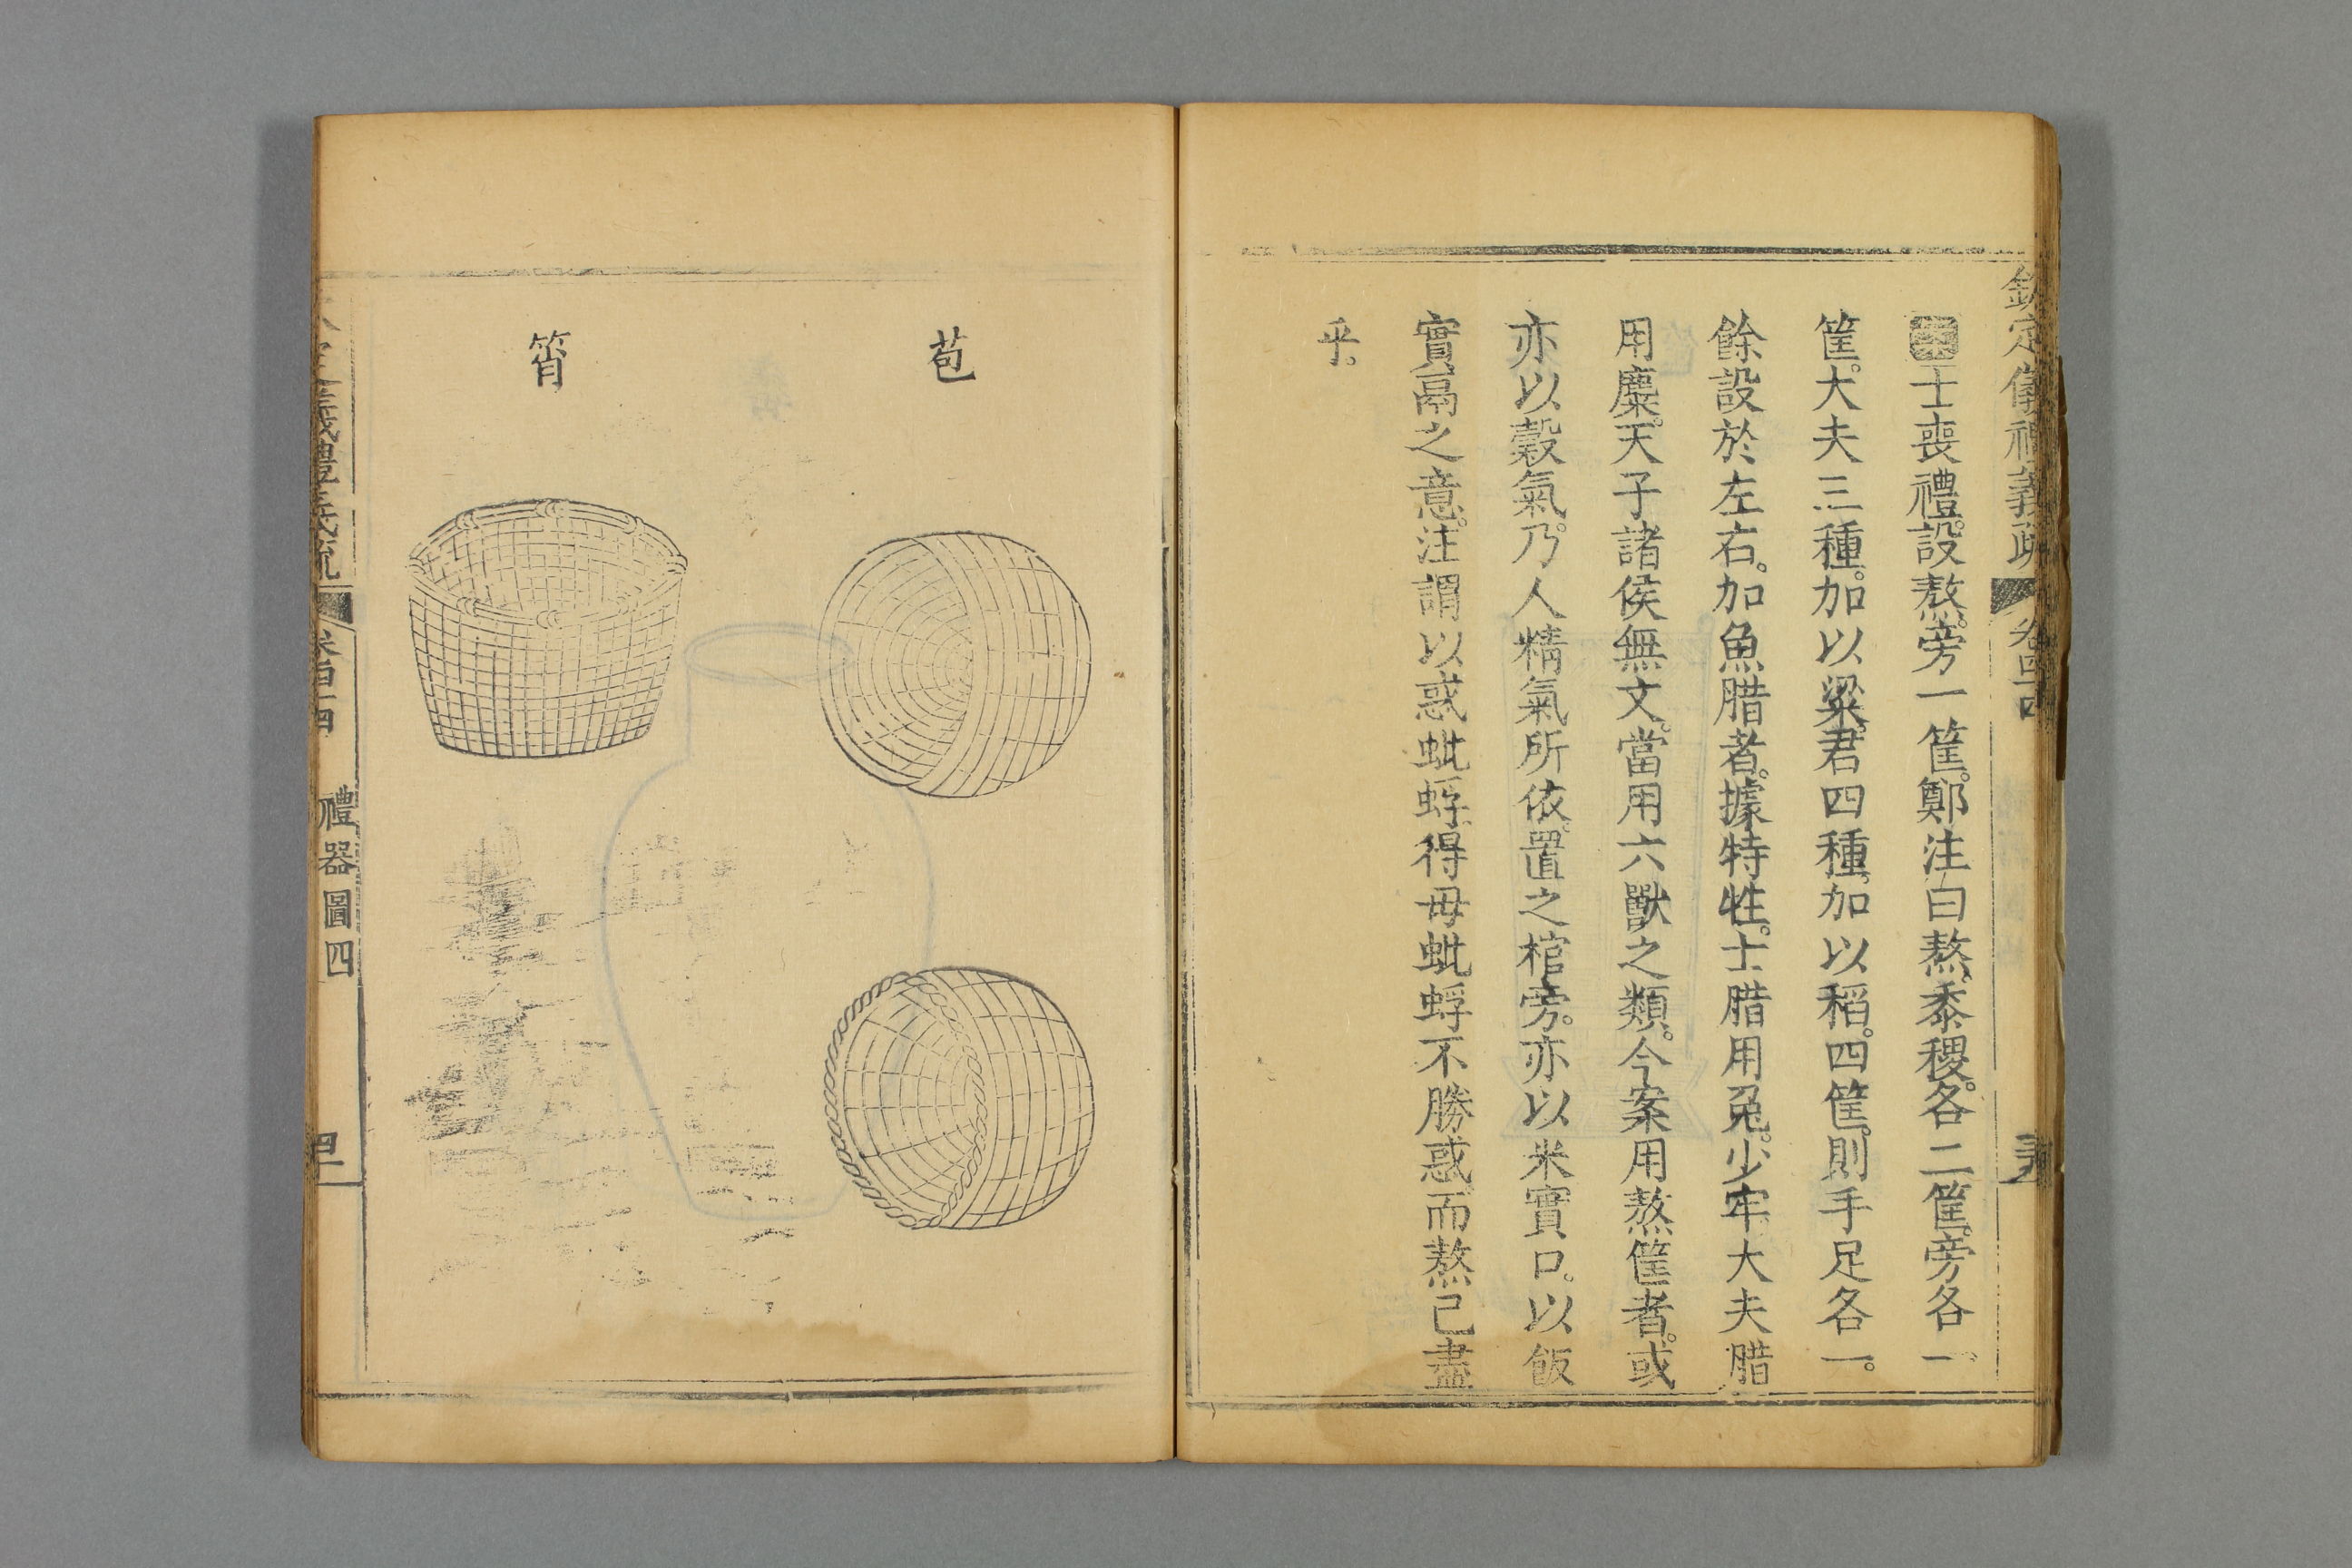 欽定儀禮義疏 卷四十四
案士喪禮。設熬。旁一筐。鄭注曰熬。黍稷。各二筐。旁各一
筐。大夫三種。加以粱。君四種。加以稻。四筐。則手足各一。
餘設於左右。加魚腊者。據特牲。士腊用兔。少牢大夫腊
用麋。天子諸侯無文。當用六獸之類。今案用熬筐者。或
亦以穀氣。乃人精氣所依。置之棺旁。亦以米實口。以飯
實鬲之意。注謂以惑蚍蜉。得毋蚍蜉不勝惑而熬已盡
乎。
苞
筲
儀禮義疏 禮器圖四